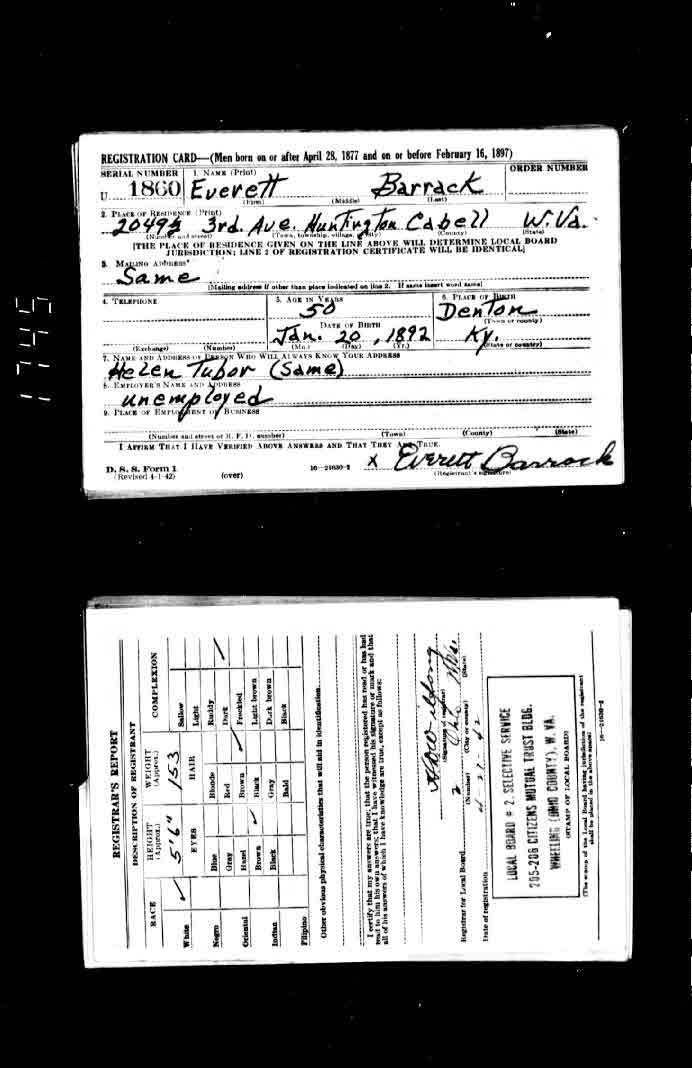 REGISTRATION CARD—(Men born on or after April 28, 1877 and on or before February 16, 1897)
SERIAL NUMBER 1. NAME (Print) ORDER NUMBER
U 1860 Everett Barrack
(First) (Middle) (Last)
2. PLACE OF RESIDENCE (Print)
2049½ 3rd. Ave. Huntington Cabell W. Va.
(Number and street) (Town, township, village, or city) (County) (State)
[THE PLACE OF RESIDENCE GIVEN ON THE LINE ABOVE WILL DETERMINE LOCAL BOARD
JURISDICTION; LINE 2 OF REGISTRATION CERTIFICATE WILL BE IDENTICAL]
3. MAILING ADDRESS
Same
[Mailing address if other than place indicated on line 2. If same insert word same]
4. TELEPHONE 5. AGE IN YEARS 6. PLACE OF BIRTH
50 Denton
DATE OF BIRTH (Town or county)
Jan. 20, 1892 Ky.
(Exchange) (Number) (Mo.) (Day) (Yr.) (State or country)
7. NAME AND ADDRESS OF PERSON WHO WILL ALWAYS KNOW YOUR ADDRESS
Helen Tubor (Same)
8. EMPLOYER'S NAME AND ADDRESS
unemployed
9. PLACE OF EMPLOYMENT OR BUSINESS
(Number and street or R. F. D. number) (Town) (County) (State)
I AFFIRM THAT I HAVE VERIFIED ABOVE ANSWERS AND THAT THEY ARE TRUE.
D. S. S. Form 1 X Everett Barrack
(Revised 4-1-42) (over) 16—21630-2 (Registrant's signature)
1745
REGISTRAR'S REPORT
DESCRIPTION OF REGISTRANT
RACE HEIGHT (Approx.) WEIGHT (Approx.) COMPLEXION
5'6" 153
White ✓ EYES HAIR Sallow
Light
Negro Blue Blonde Ruddy
Gray Red Dark ✓
Oriental Hazel Brown ✓ Freckled
Brown ✓ Black Light brown
Indian Black Gray Dark brown
Bald Black
Filipino
Other obvious physical characteristics that will aid in identification
I certify that my answers are true; that the person registered has read or has had
read to him his own answers; that I have witnessed his signature or mark and that
all of his answers of which I have knowledge are true, except as follows:
(Signature of registrar)
Registrar for Local Board 2
(Number) (City or county) (State)
Date of registration 4-27-42
LOCAL BOARD # 2. SELECTIVE SERVICE
205-206 CITIZENS MUTUAL TRUST BLDG.
WHEELING (OHIO COUNTY), W. VA.
(STAMP OF LOCAL BOARD)
(The stamp of the Local Board having jurisdiction of the registrant
shall be placed in the above space)
16—21630-2